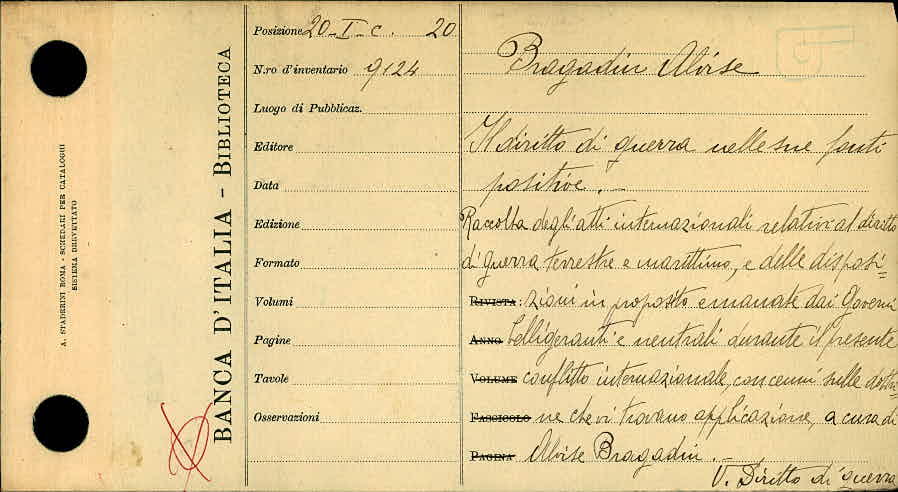 A. STADERINI ROMA - SCHEDARI PER CATALOGHI
SISTEMA BREVETTATO
BANCA D'ITALIA - BIBLIOTECA
Posizione 20-I-c. 20
N.ro d'inventario 9124
Luogo di Pubblicaz.
Editore
Data
Edizione
Formato
Volumi
Pagine
Tavole
Osservazioni
Bragadin Alvise
Il diritto di guerra nelle sue fonti
positive.-
Raccolta degli atti internazionali relativi al diritto
di guerra terrestre e marittimo, e delle disposi=
RIVISTA: zioni in proposito emanate dai Governi
ANNO belligeranti e neutrali durante il presente
VOLUME conflitto internazionale, con cenni sulle dottri=
FASCICOLO ne che vi trovano applicazione, a cura di
PAGINA Alvise Bragadin.-
V. Diritto di guerra